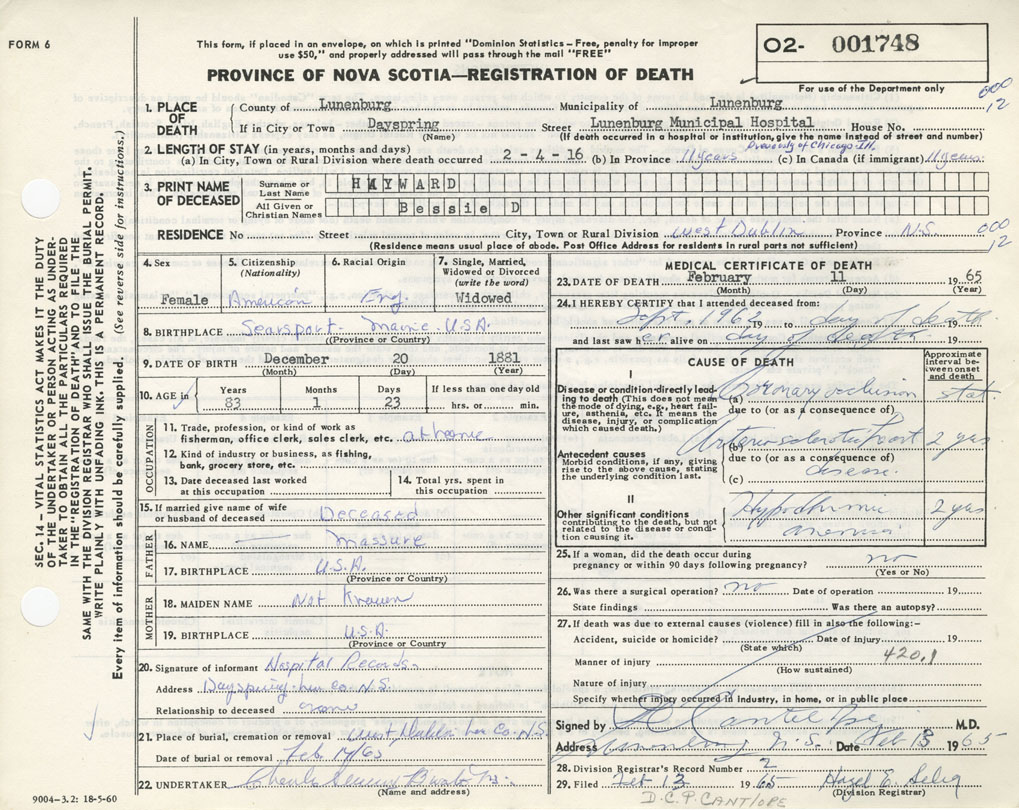 FORM 6
This form, if placed in an envelope, on which is printed "Dominion Statistics – Free, penalty for improper
use $50," and properly addressed will pass through the mail "FREE"
02- 001748
For use of the Department only
PROVINCE OF NOVA SCOTIA—REGISTRATION OF DEATH
000
12
1. PLACE OF DEATH
County of Lunenburg Municipality of Lunenburg
If in City or Town Dayspring Street Lunenburg Municipal Hospital House No.
(Name) (If death occurred in a hospital or institution, give the name instead of street and number)
2. LENGTH OF STAY (in years, months and days)
(a) In City, Town or Rural Division where death occurred 2 - 4 - 16 (b) In Province 11 years (c) In Canada (if immigrant) 11 years
Previously of Chicago Ill.
3. PRINT NAME OF DECEASED
Surname or Last Name HAYWARD
All Given or Christian Names Bessie D
RESIDENCE No Street City, Town or Rural Division West Dublin Province N.S.
(Residence means usual place of abode. Post Office Address for residents in rural parts not sufficient)
000
12
4. Sex Female
5. Citizenship (Nationality) American
6. Racial Origin Eng.
7. Single, Married, Widowed or Divorced (write the word) Widowed
8. BIRTHPLACE Searsport - Maine U.S.A.
(Province or Country)
9. DATE OF BIRTH December 20 1881
(Month) (Day) (Year)
10. AGE in Years 83 Months 1 Days 23 If less than one day old hrs. or min.
OCCUPATION
11. Trade, profession, or kind of work as fisherman, office clerk, sales clerk, etc. at home
12. Kind of industry or business, as fishing, bank, grocery store, etc.
13. Date deceased last worked at this occupation
14. Total yrs. spent in this occupation
15. If married give name of wife or husband of deceased Deceased
FATHER
16. NAME Massure
17. BIRTHPLACE U.S.A.
(Province or Country)
MOTHER
18. MAIDEN NAME Not Known
19. BIRTHPLACE U.S.A.
(Province or Country)
20. Signature of informant Hospital Records
Address Dayspring Lun Co N.S.
Relationship to deceased none
21. Place of burial, cremation or removal West Dublin Lun Co. N.S.
Date of burial or removal Feb 17/65
22. UNDERTAKER
(Name and address)
9004–3.2: 18-5-60
MEDICAL CERTIFICATE OF DEATH
23. DATE OF DEATH February 11 1965
(Month) (Day) (Year)
24. I HEREBY CERTIFY that I attended deceased from:
Sept. 1962 19 to day of death 19
and last saw her alive on day of death 19
CAUSE OF DEATH
Approximate interval between onset and death
I
Disease or condition directly leading to death (This does not mean the mode of dying, e.g., heart failure, asthenia, etc. It means the disease, injury, or complication which caused death.)
(a) Coronary occlusion stat.
due to (or as a consequence of)
Antecedent causes
Morbid conditions, if any, giving rise to the above cause, stating the underlying condition last.
(b) Arteriosclerotic heart 2 yrs
due to (or as a consequence of)
(c) disease.
II
Other significant conditions contributing to the death, but not related to the disease or condition causing it.
anemia 2 yrs
25. If a woman, did the death occur during pregnancy or within 90 days following pregnancy? no
(Yes or No)
26. Was there a surgical operation? no Date of operation 19
State findings Was there an autopsy?
27. If death was due to external causes (violence) fill in also the following:–
Accident, suicide or homicide? Date of injury 19
(State which)
Manner of injury 420.1
(How sustained)
Nature of injury
Specify whether injury occurred in industry, in home, or in public place
Signed by D Cantelope M.D.
Address Lunenburg N.S. Date Feb 13 1965
28. Division Registrar's Record Number 2
29. Filed Feb 13 1965 Hazel E. Selig
(Division Registrar)
D.C.P. CANTLOPE
SEC. 14 – VITAL STATISTICS ACT MAKES IT THE DUTY
OF THE UNDERTAKER OR PERSON ACTING AS UNDER-
TAKER TO OBTAIN ALL THE PARTICULARS REQUIRED
IN THE "REGISTRATION OF DEATH" AND TO FILE THE
SAME WITH THE DIVISION REGISTRAR WHO SHALL ISSUE THE BURIAL PERMIT.
WRITE PLAINLY WITH UNFADING INK. THIS IS A PERMANENT RECORD.
Every item of information should be carefully supplied. (See reverse side for instructions.)